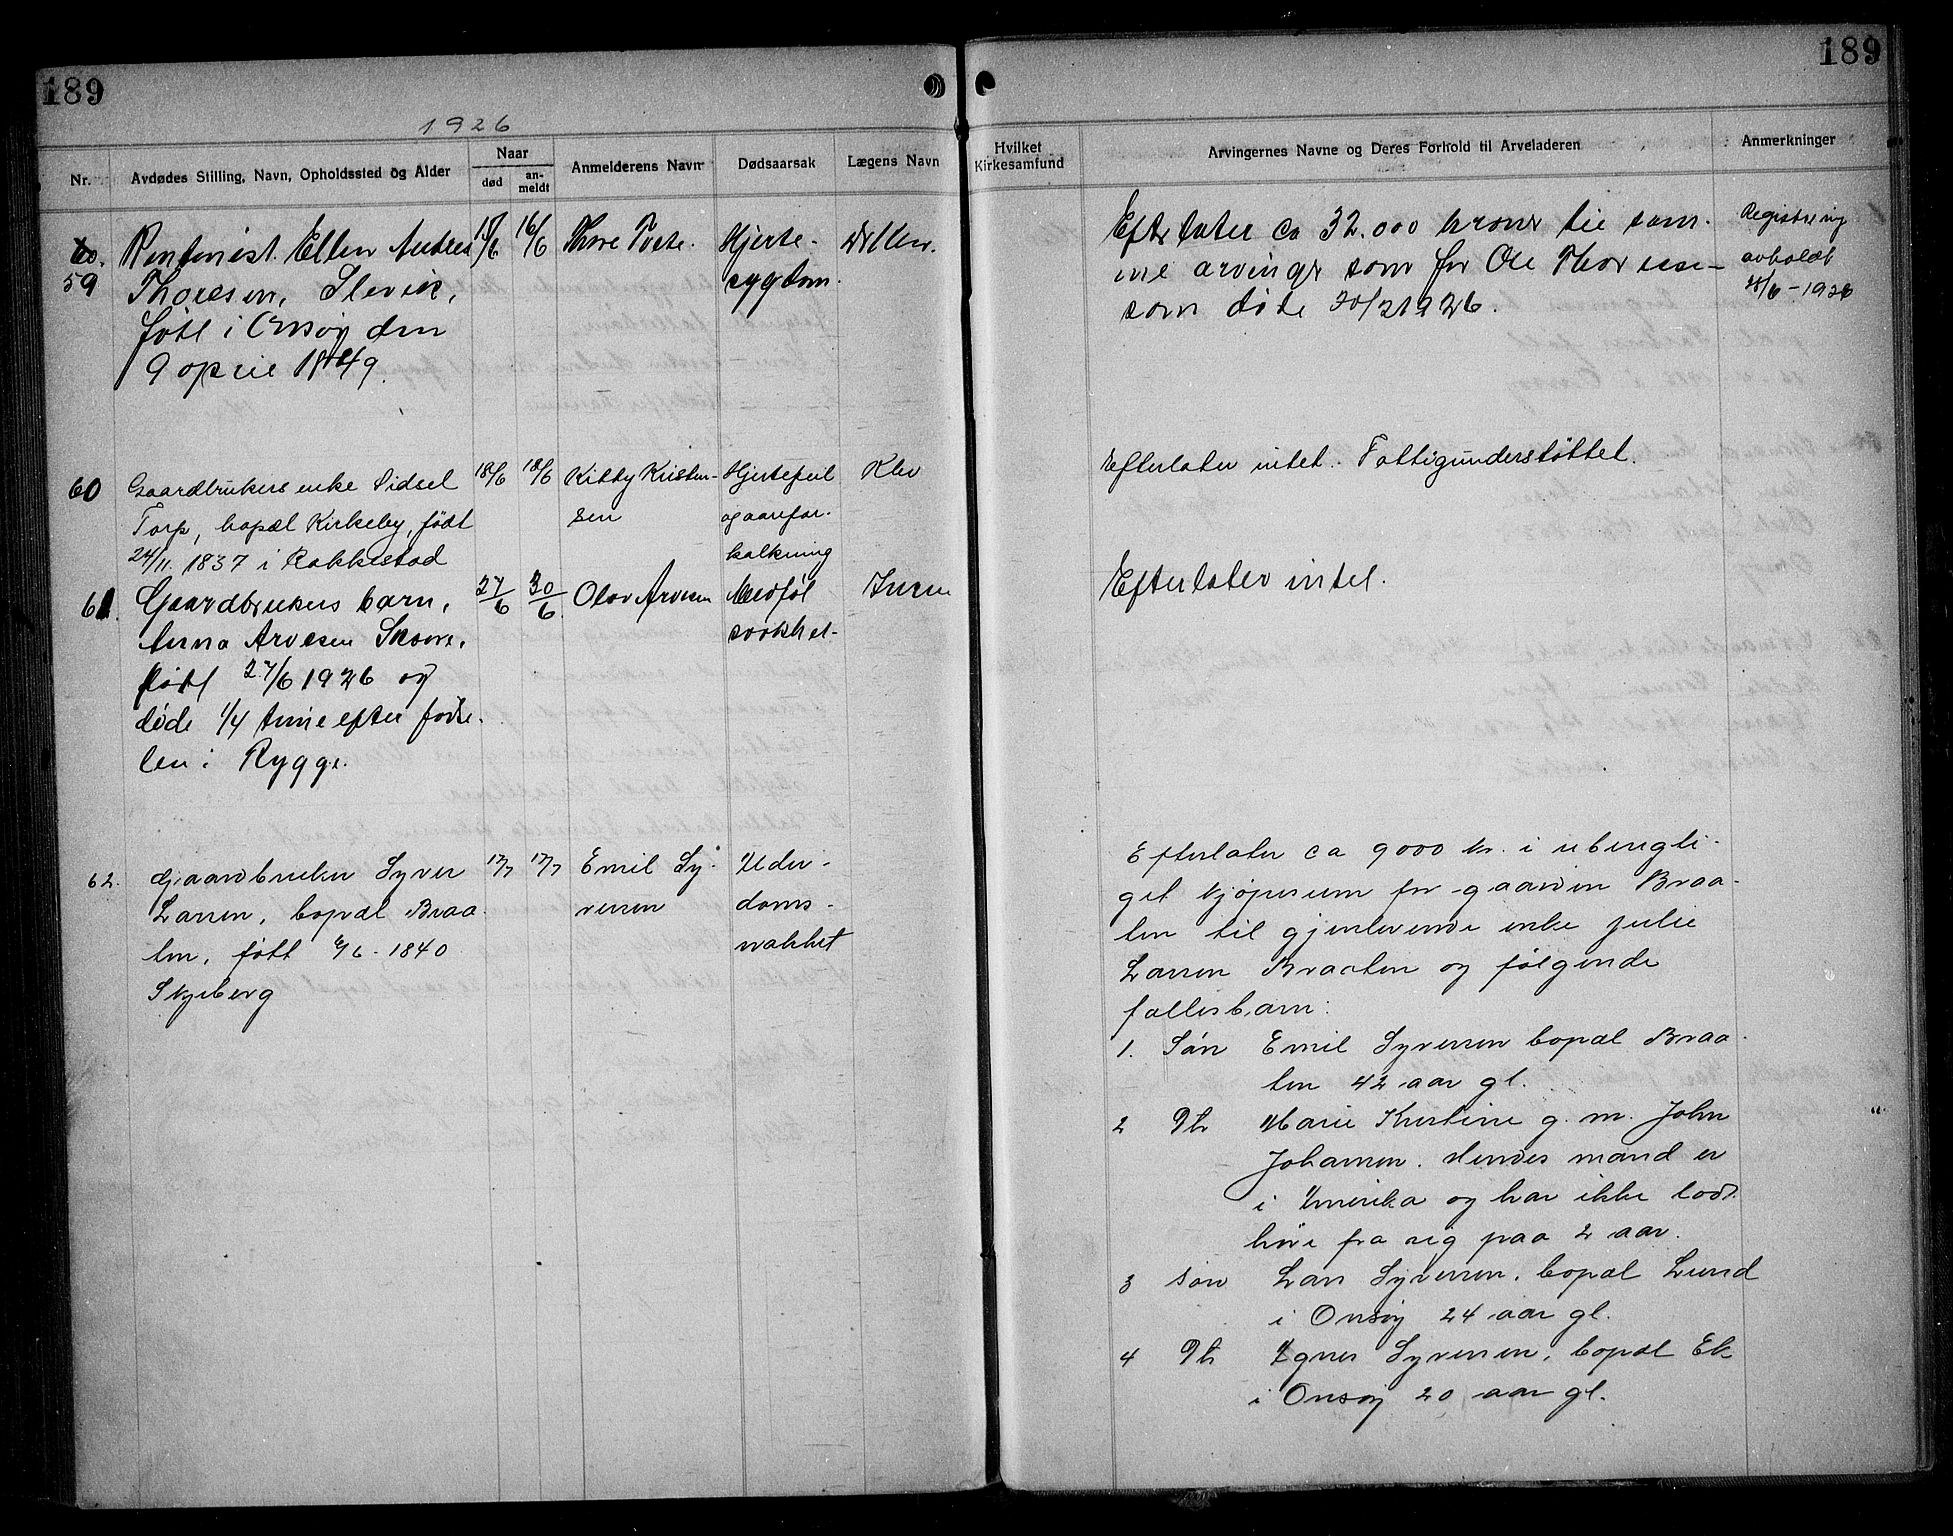 189
189
1926
Nr.
Avdødes Stilling, Navn, Opholdssted og Alder
Naar
død
an-
meldt
Anmelderens Navn
Dødsaarsak
Lægens Navn
Hvilket
Kirkesamfund
Arvingernes Navne og Deres Forhold til Arveladeren
Anmerkninger
59
Rentenist. Ellen Andrea
Thoresen, Slevik,
født i Onsøy den
9 april 1849.
16/6
Thore
Hjerte-
sygdom.
Efterlater ca 32.000 kroner til sam-
me arvinger som for Ole Thoresen
som døde 20/2 1926.
Registrering
avholdt
28/6-1926
60
Gaardbrukers enke Sidsel
Torp, bopæl Kirkeby, født
24/11. 1837 i Rakkestad
18/6
18/6
Kitty Kristen-
sen
Hjertefeil
og aarefor-
kalkning
Klev
Efterlater intet. Fattigunderstøttet.
61.
Gaardbrukers barn,
Anna Arvesen
født 27/6 1926 og
døde 1/4 time efter fødse-
len i Rygge.
27/6
30/6
Olav Arvesen
Medføt
svakhet
Efterlater intet.
62.
Gaardbruker Syver
Larsen, bopæl Braa-
ten, født 6/6-1840
Skjeberg
17/7
17/7
Emil Sy-
versen
Alder-
doms-
svakhet
Efterlater ca 9000 kr. i ubenyt­ti-
get kjøpesum for gaarden Braa-
ten til gjenlevende enke Julie
Larsen Braaten og følgende
fællesbarn:
1. Søn Emil Syversen bopæl Braa-
ten 42 aar gl.
2 Dtr Marie Kristine g. m. John
Johansen. Hendes mand er
i Amerika og har ikke latt
høre fra sig paa 2 aar.
3 søn Lars Syversen, bopæl Lund
i Onsøy 24 aar gl.
4 Dtr Agnes Syversen, bopæl Ek
i Onsøy 20 aar gl.